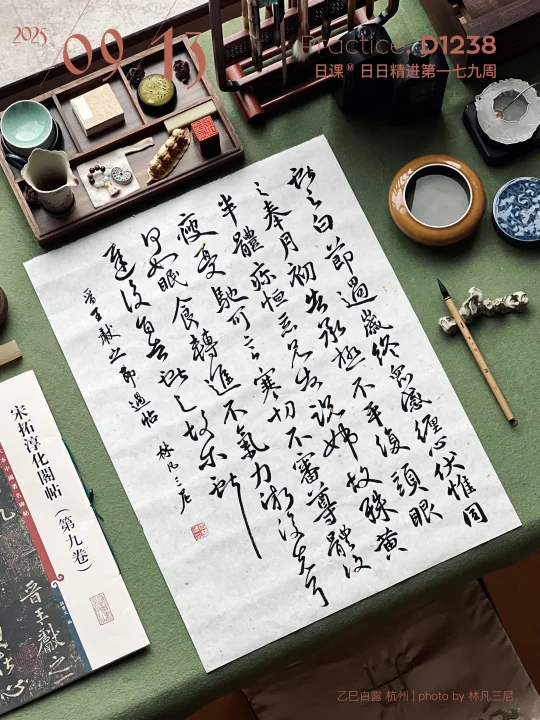 2025
09/13
Practice D1238
日课 M 日日精进第一七九周
獻之白節過歲終眾感纏心伏惟同
之奉月初告承極不平復頭眼
半體疼恒惡兄告說姊故殊黃
瘦憂馳可言寒切不審尊體復
何如眠食轉進不氣力漸復先耳
遣復自告獻之故尔獻
晉王獻之節過帖 林凡三尼
宋拓淳化閣帖（第九卷）
晉王獻之
乙巳白露 杭州 | photo by 林凡三尼